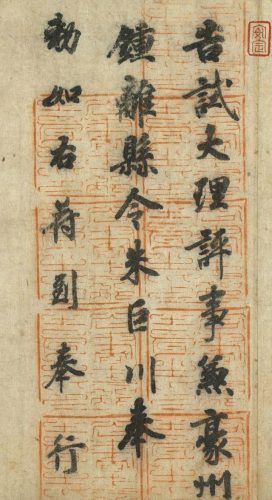 告試大理評事兼豪州
鍾離縣令朱巨川奉
勑如右符到奉行